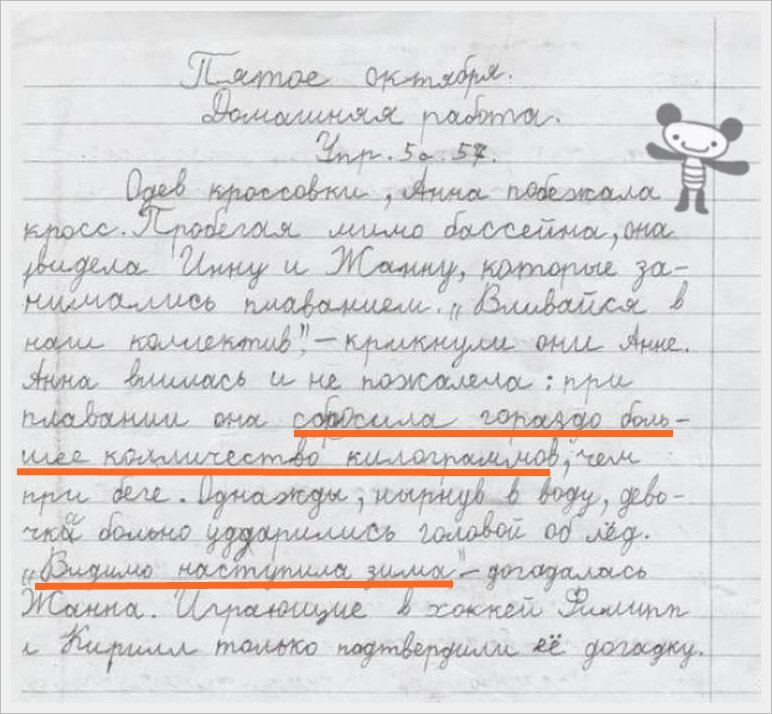 Пятое октября.
Домашняя работа.
Упр. 5 с. 57.
Одев кроссовки, Анна побежала
кросс. Пробегая мимо бассейна, она
увидела Инну и Жанну, которые за-
нимались плаванием. „Вливайся в
наш коллектив!" – крикнули они Анне.
Анна влилась и не пожалела: при
плавании она сбросила гораздо боль-
шее колличество килограммов, чем
при беге. Однажды, нырнув в воду, дево-
чка больно ударились головой об лёд.
„Видимо наступила зима" – догадалась
Жанна. Играющие в хоккей Филипп
и Кирилл только подтвердили её догадку.